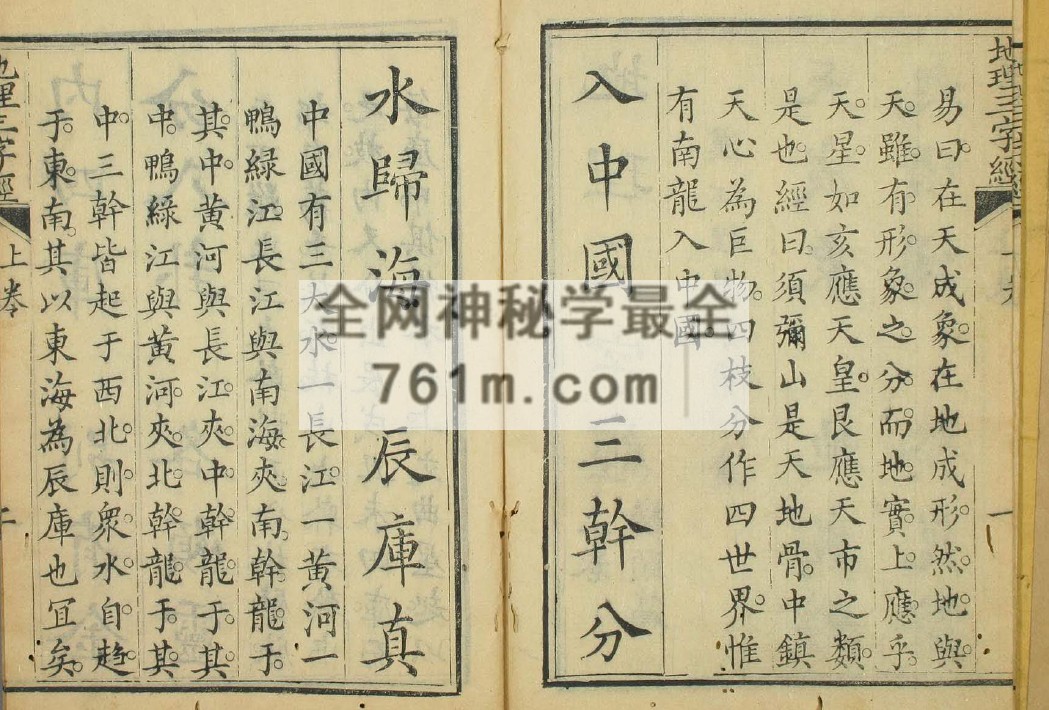 地理三字經
易曰在天成象在地成形。然地與
天。雖有形象之分。而地實上應乎
天。星如亥應天皇。艮應天市之類。
是也。經曰。須彌山是天地骨。中鎮
天心為巨物。四枝分作四世界。惟
有南龍入中國。
入中國三幹分
水歸海辰庫真
中國有三大水。一長江。一黃河。一
鴨綠江。長江與南海。夾南幹龍于
其中。黃河與長江。夾中幹龍于其
中。鴨綠江與黃河。夾北幹龍于其
中。三幹皆起于西北。則衆水自趨
于東南。其以東海為辰庫也宜矣。
地理三字經 上卷
全网神秘学最全
761m.com